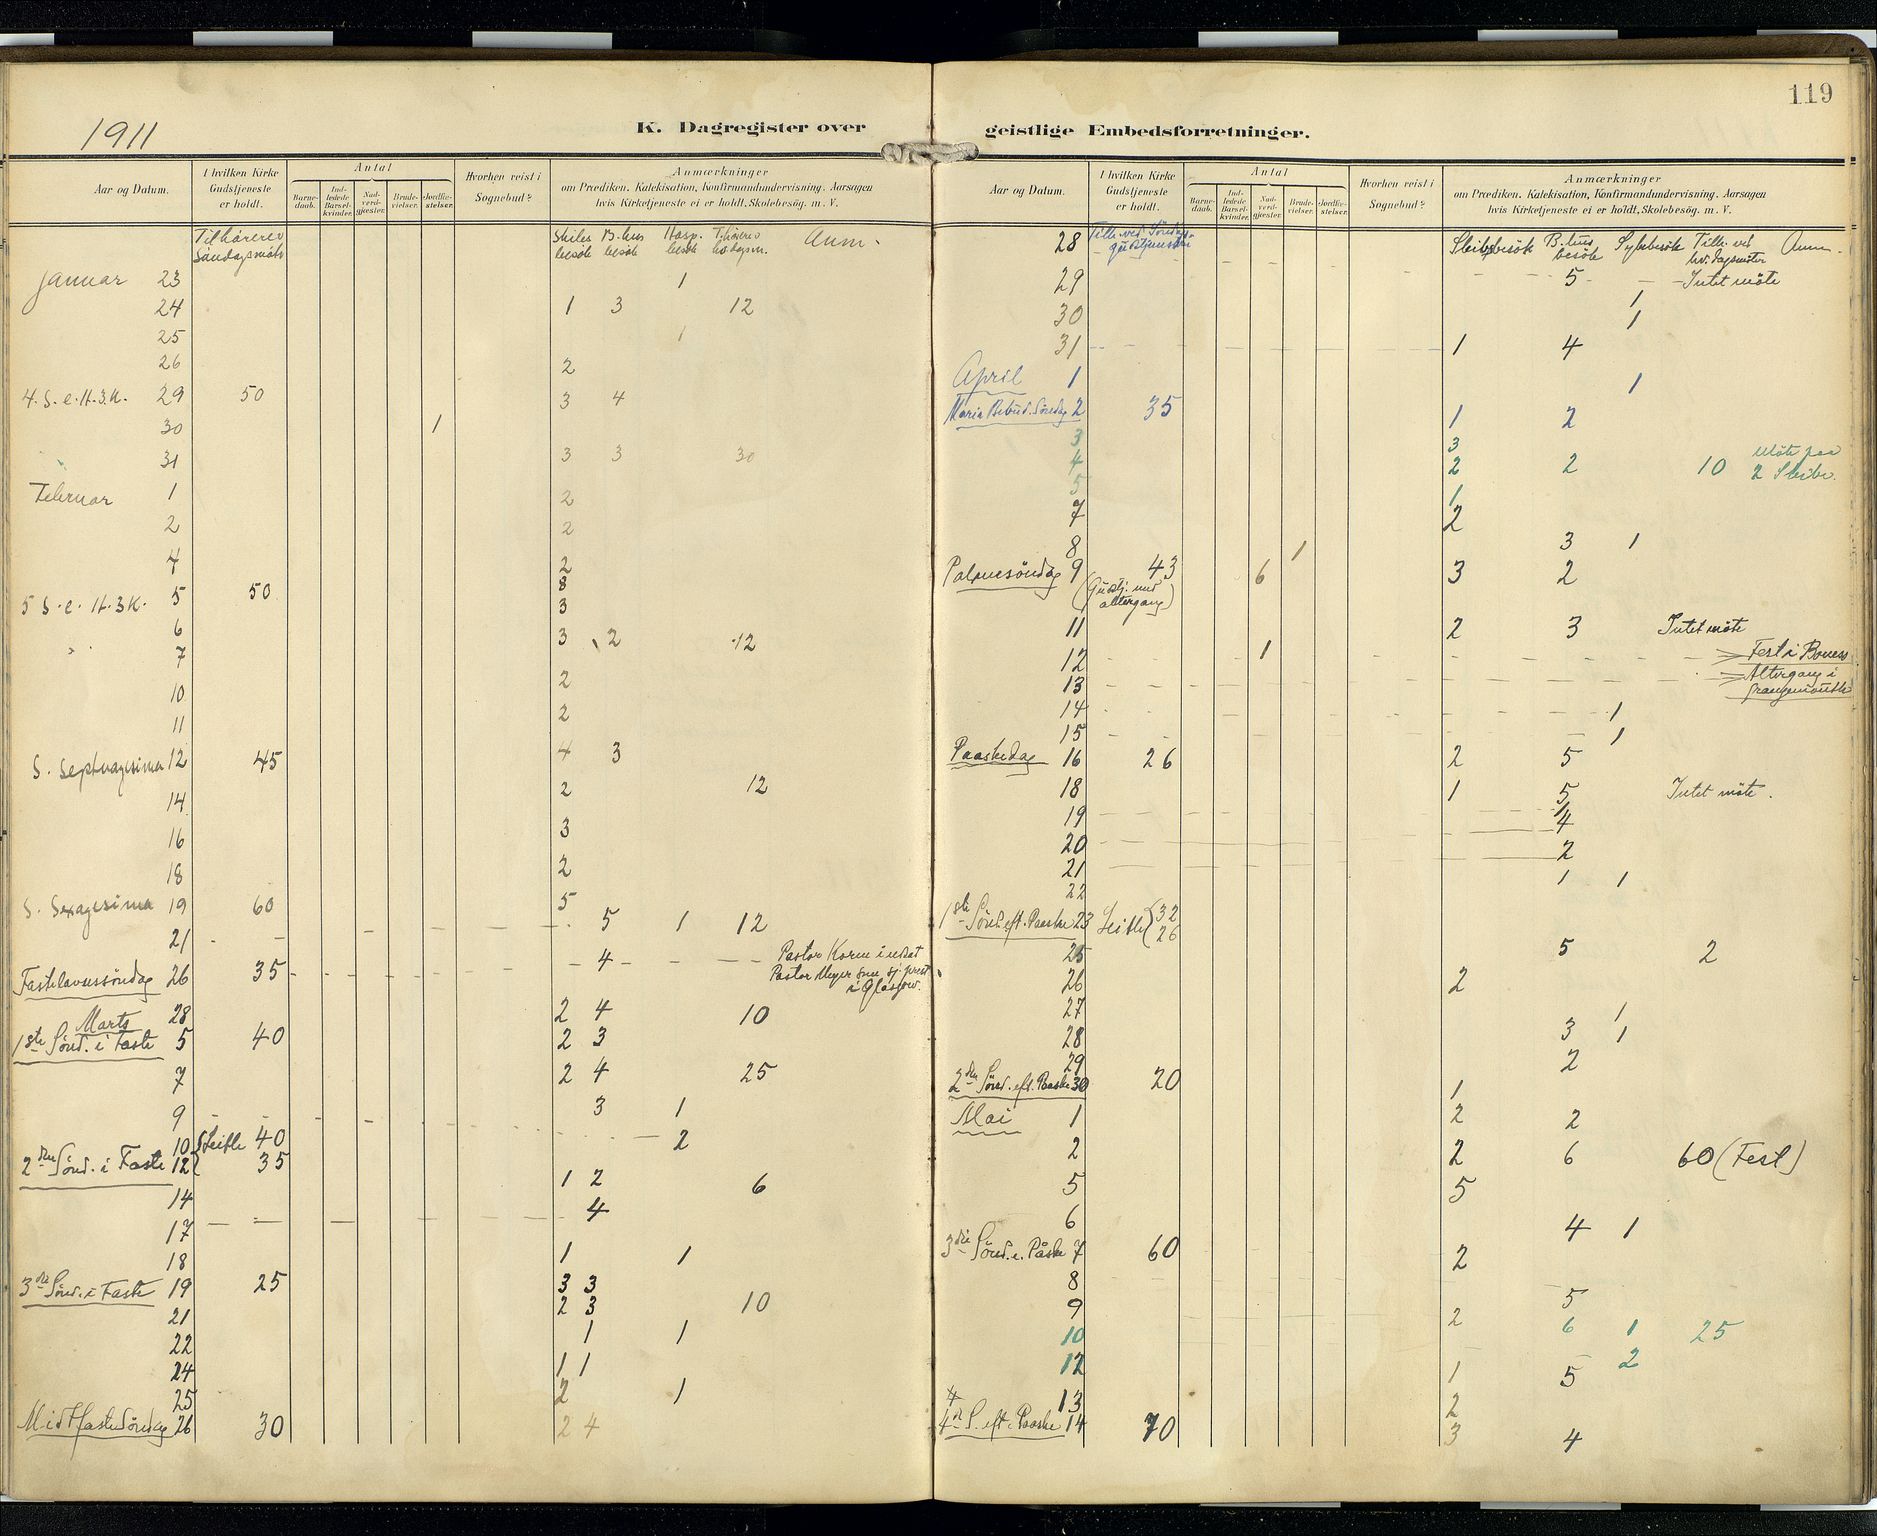 119
1911
K. Dagregister over geistlige Embedsforretninger.
Aar og Datum.
I hvilken Kirke Gudstjeneste er holdt.
Antal
Barnedaab.
Indledede Barselkvinder.
Nadverdgjester.
Brudevielser.
Jordfæstelser.
Hvorhen reist i Sognebud?
Anmærkninger
om Prædiken, Katekisation, Konfirmandundervisning. Aarsagen
hvis Kirketjeneste ei er holdt, Skolebesøg. m. V.
Tilhørere Søndagsmøte
Skibsbesök B.hus besök Hosp. besök Tilhörere hv.dagsm. Anm.
Januar 23 1
24 1 3 12
25 1
26 2
4. S. e. H. 3 K. 29 50 3 4
30 1
31 3 3 30
Februar 1 2
2 2
4 2
8
5 S. e. H. 3 K. 5 50 3
6 3 2 12
7 2
10 2
11
S. Septuagesima 12 45 4 3
14 2 12
16 3
18 2
S. Sexagesima 19 60 5
21 5 1 12
Fastelavnssöndag 26 35 4 Pastor Korne indsat
Pastor Meyer som sj.prest
i Glasgow.
28 2 4 10
Marts
1ste Sönd. i Faste 5 40 2 3
7 2 4 25
9 3 1
10 Leith 40 2
2den Sönd. i Faste 12 35
14 1 2 6
17 4
18 1 1
3die Sönd. i Faste 19 25 3 3
21 2 3 10
22 1 1
24 1 1
25 2 1
Midtfaste Söndag 26 30 2 4
Aar og Datum.
I hvilken Kirke Gudstjeneste er holdt.
Antal
Barnedaab.
Indledede Barselkvinder.
Nadverdgjester.
Brudevielser.
Jordfæstelser.
Hvorhen reist i Sognebud?
Anmærkninger
om Prædiken, Katekisation, Konfirmandundervisning. Aarsagen
hvis Kirketjeneste ei er holdt, Skolebesøg. m. V.
28 Tilh. ved Söndags-gudstjenester
Skibsbesök B.hus besök Sykebesök Tilh. ved hv.dagsmöter Anm.
29 5 Intet möte
30 1
1
31 1 4
April 1 1
Maria Bebud. Söndag 2 35 1 2
3 3
4 2 2 10 Möte paa
2 Skibe.
5 1
7 2
8 1 3 1
Palmesöndag 9 43 6 3 2
(Gudstj. med altergang)
11 2 3 Intet möte
12 1 Fest i Boness
13 Altergang i
Grangemouth
14 1
15 1
Paaskedag 16 26 2 5
18 1 5 Intet möte.
19 4
20 2
21
22 1 1
1ste Sönd. eft. Paaske 23 Leith { 32
26
25 5 2
26 2
27 1
28 3 1
29 2
2den Sönd. eft. Paaske 30 20 1
Mai 1 2 2
2 2 6 60 (Fest)
5 5
6 4 1
3die Sönd. e. Påske 7 60 2
8 5
9 2
10 6 1 25
12 2
1 5
13 2
4de S. eft. Paaske 14 70 3 4